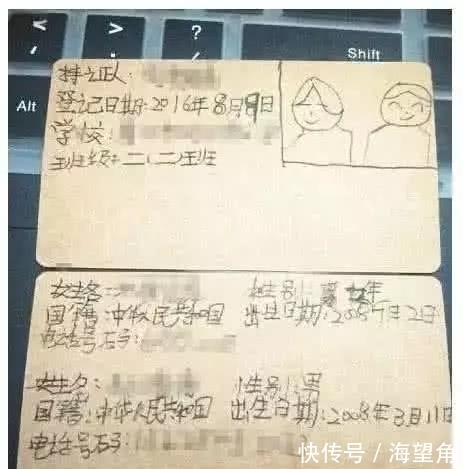 < ,
> .
? /
Shift
Alt
持证人:
登记日期:2016年8月9日
学校:
班级:二(二)班
姓名: 性别:女
国籍:中华人民共和国 出生日期:2008年7月2日
电话号码:
姓名: 性别:男
国籍:中华人民共和国 出生日期:2008年3月11日
电话号码:
快传号/海望角